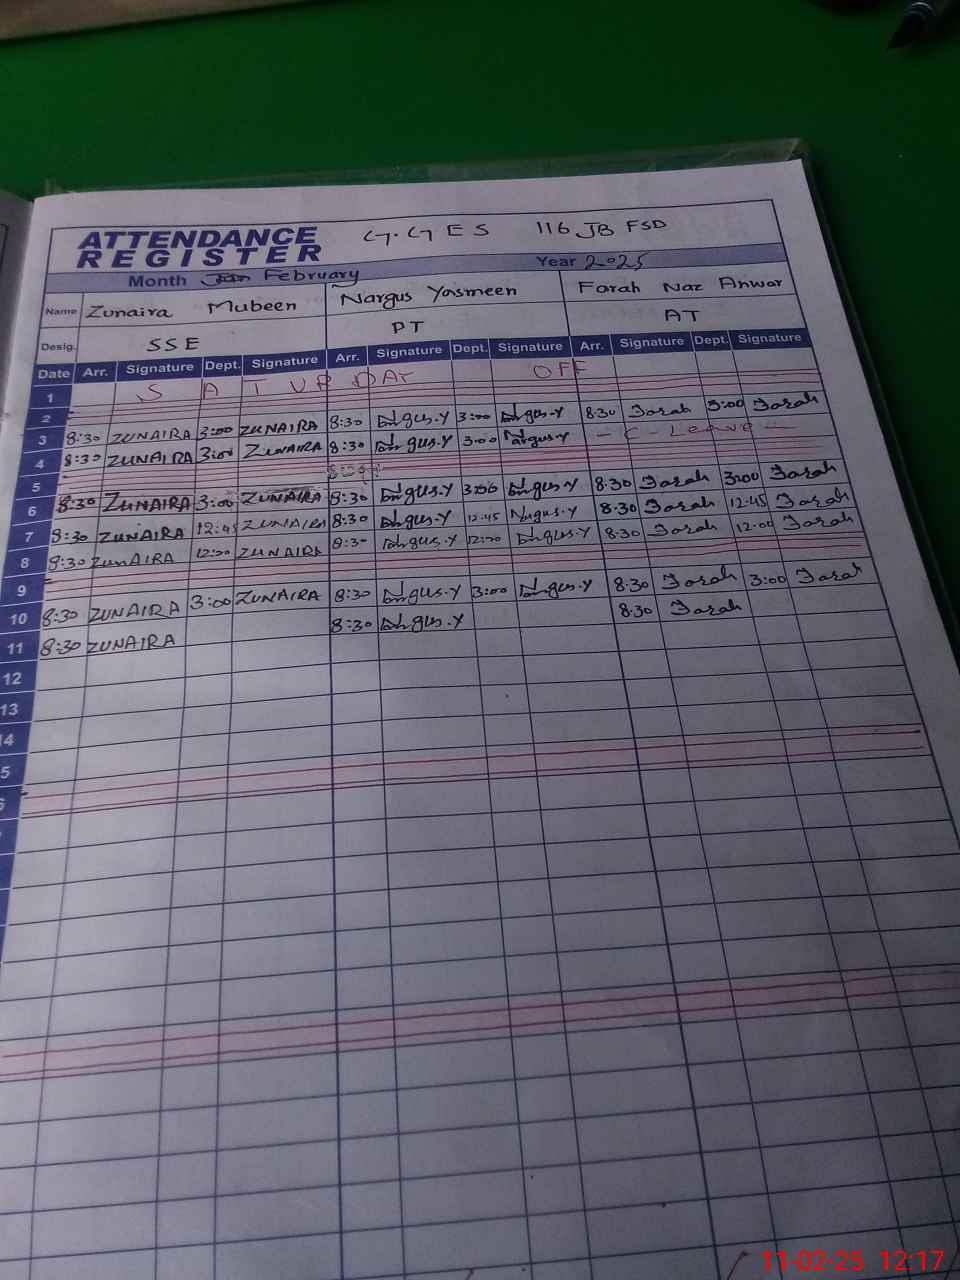 ATTENDANCE REGISTER G.G E S 116 JB FSD
Month February Year 2025
Name Zunaira Mubeen Nargus Yasmeen Farah Naz Anwar
Desig. SSE PT AT
Date Arr. Signature Dept. Signature Arr. Signature Dept. Signature Arr. Signature Dept. Signature
1 SATURDAY OFF
2
3 8:30 ZUNAIRA 3:00 ZUNAIRA 8:30 Nargus.Y 3:00 Nargus.Y 8:30 Farah 3:00 Farah
4 8:30 ZUNAIRA 3:00 ZUNAIRA 8:30 Nargus.Y 3:00 Nargus.Y - C - Leave -
5
6 8:30 ZUNAIRA 3:00 ZUNAIRA 8:30 Nargus.Y 3:00 Nargus.Y 8:30 Farah 3:00 Farah
7 8:30 ZUNAIRA 12:45 ZUNAIRA 8:30 Nargus.Y 12:45 Nargus.Y 8:30 Farah 12:45 Farah
8 8:30 ZUNAIRA 12:00 ZUNAIRA 8:30 Nargus.Y 12:00 Nargus.Y 8:30 Farah 12:00 Farah
9
10 8:30 ZUNAIRA 3:00 ZUNAIRA 8:30 Nargus.Y 3:00 Nargus.Y 8:30 Farah 3:00 Farah
11 8:30 ZUNAIRA 8:30 Nargus.Y 8:30 Farah
12
13
14
5
11-02-25 12:17